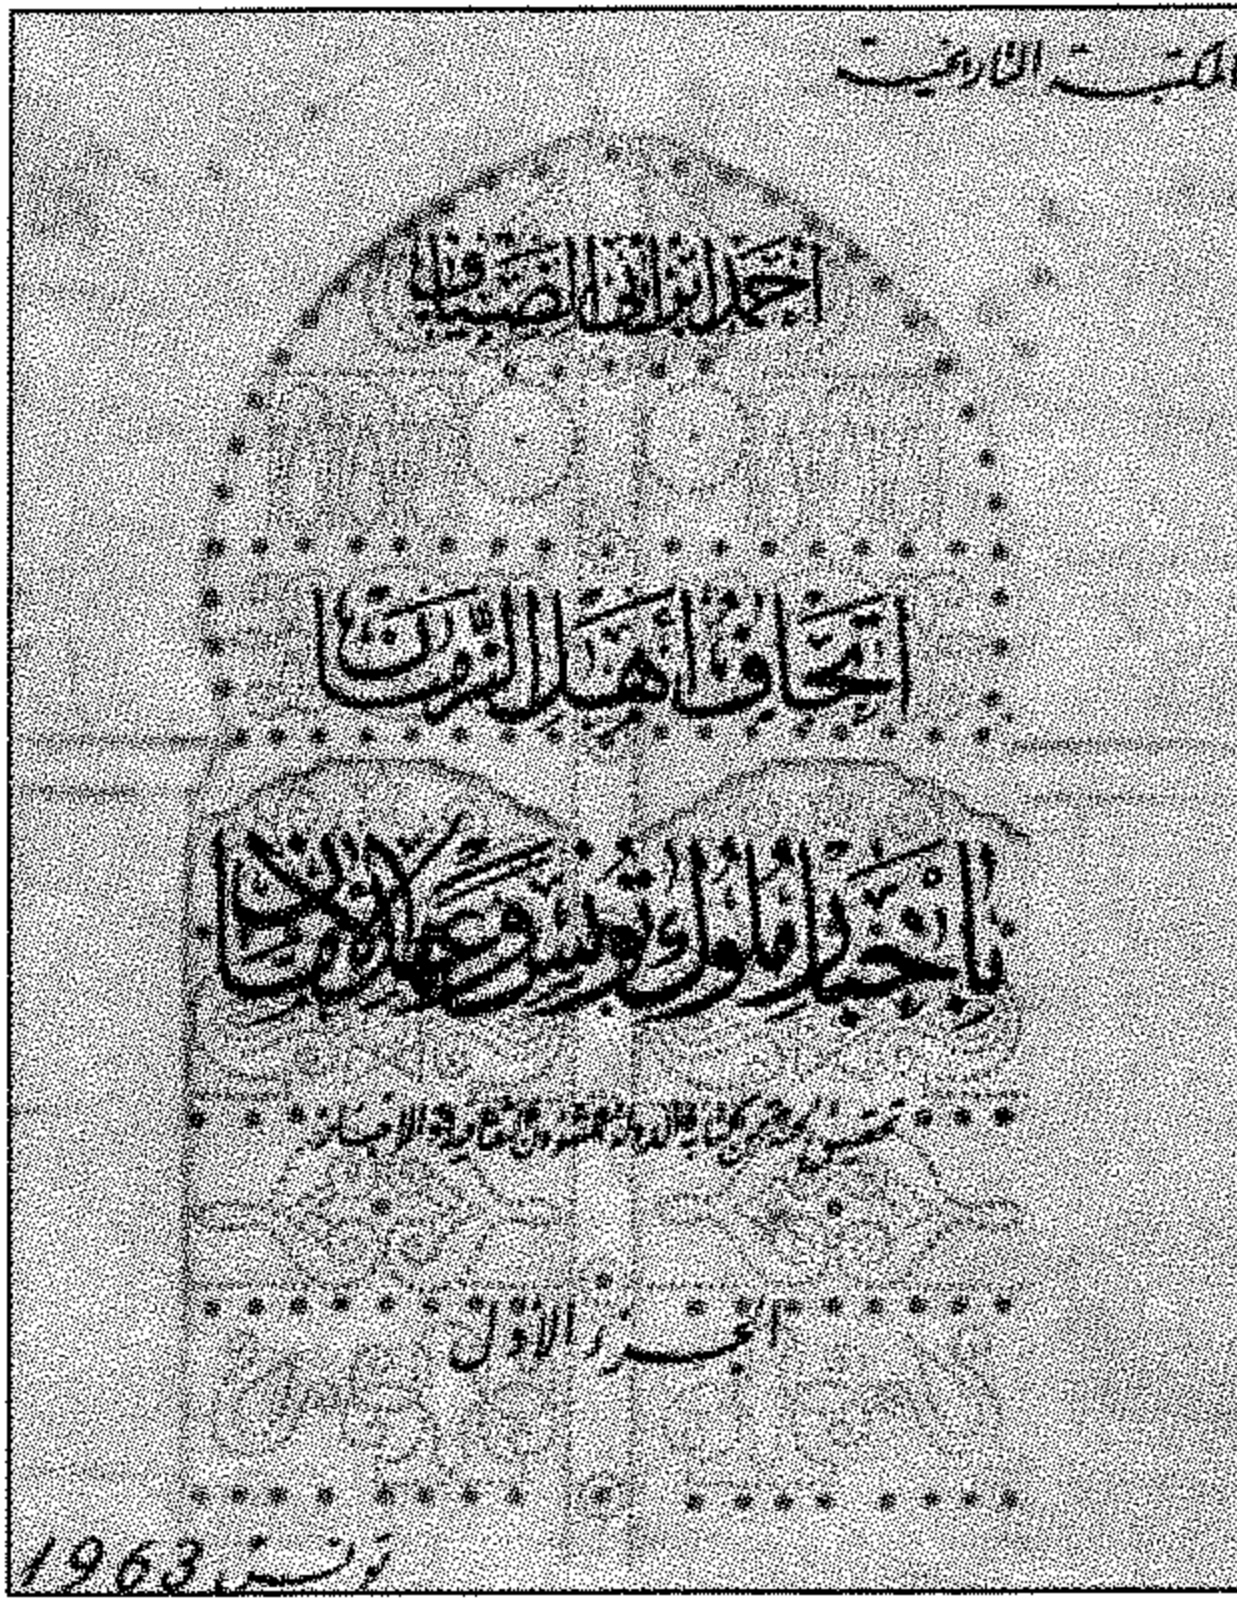 المكتبة التاريخية
احمد ابن ابي الضياف
اتحاف أهل الزمان
بأخبار ملوك تونس وعهد الامان
تحقيق لجنة من كتابة الدولة للشؤون الثقافية والاخبار
الجزء الأول
تونس 1963